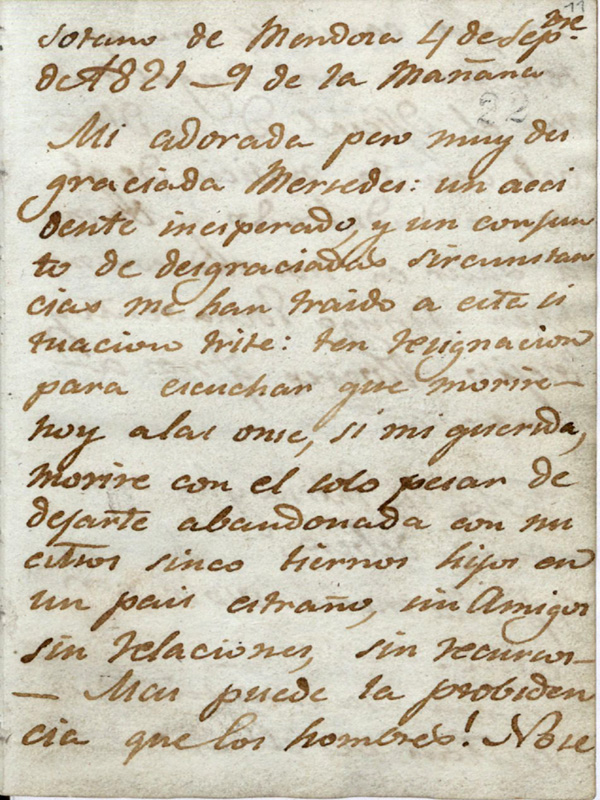 11
sotano de Mendosa 4 de Sepbre
de 1821 – 9 de la Mañana
22
Mi adorada pero muy des
graciada Mersedes: un acci
dente inesperado, y un conjun
to de desgraciadas sircunstan
cias me han traido a esta si
tuacion triste: ten resignacion
para escuchar que morire
hoy a las onse, si mi querida,
morire con el solo pesar de
dejarte abandonada con nu
estros sinco tiernos hijos en
un pais estraño, sin Amigos
sin relaciones, sin recursos–
– Mas puede la probiden
cia que los hombres! No se